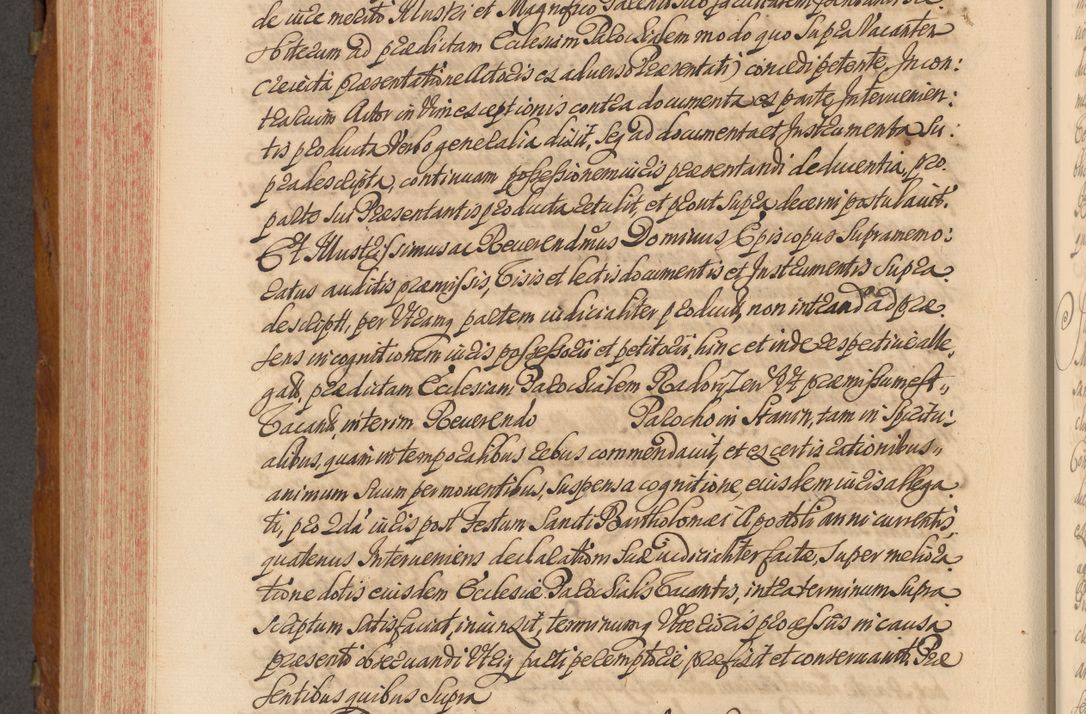 de iure merito Illustri et Magnifico
obitecum ad praedictam Ecclesiam Parochialem modo quo supra Vacantem
creiecta praesentatione Actoris ex adverso Praesentati) concedi petente, In con:
trarium Actor in Vim exceptionis contra documenta ex parte Intervenien:
tis producta Verbo generalia dixit, seq ad documenta et Instrumenta Su:
pradescripta, continuam possessionem iuris praesentandi deducentia, pro
parte sui Praesentantis producta retulit, et prout supra decerni postulavit.
Et Illustrissimus ac Reverendmus Dominus, Episcopus Supramemo:
ratus auditis praemissis, Visis et lectis documentis et Instrumentis Supra
descriptis, per Utramq partem iudicialiter productis, non intrando ad prae
sens in cognitionem iuris possessorii et petitorii, hinc et inde respective alle,
gatis, praedictam Ecclesiam Parochialem RadoszZew Ut praemissum est,,
Vacantem, interim Reverendo Parocho in Stanin, tam in Spiritu:
alibus, quam in temporalibus rebus commendavit, et ex certis rationibus,,
animum suum permoventibus, suspensa cognitione, eiusdem iuris allega
ti, pro 2da iuris post Festum Sancti Bartholomaei Apostoli anni currentis,
quatenus Interveniens declarationi suae iudicialiter factae, super meliora
tione dotis eiusdem Ecclesiae Parochialis Vacantis, intra terminum supra
scriptum satisfaciat, iniunxit, terminumq Ulterioris processus in causa
praesenti observandi Utriq parti peremptorie praefixit et conservavit. Prae
sentibus quibus supra